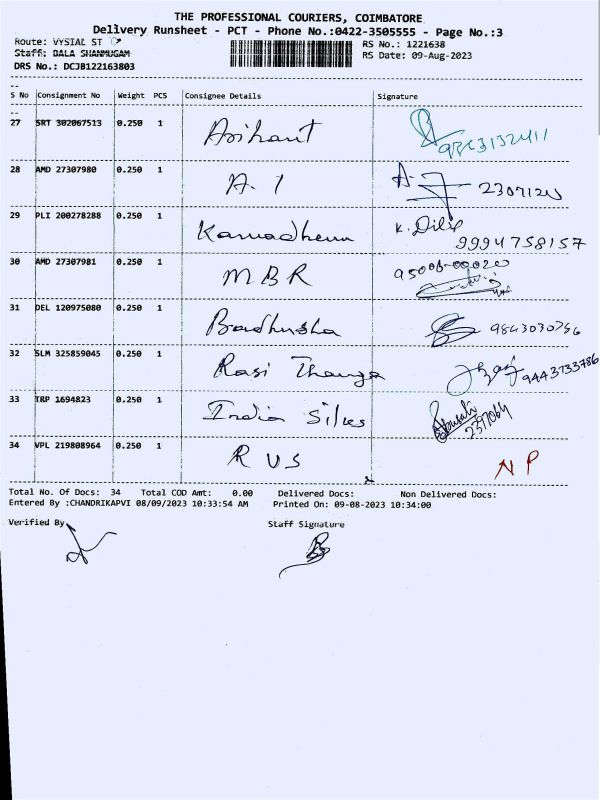 THE PROFESSIONAL COURIERS, COIMBATORE
Delivery Runsheet - PCT - Phone No.:0422-3505555 - Page No.:3
Route: VYSIAL ST
RS No.: 1221638
Staff: BALA SHANMUGAM
RS Date: 09-Aug-2023
DRS No.: DCJB122163803
S No Consignment No Weight PCS Consignee Details Signature
27 SRT 302067513 0.250 1 Arihant
28 AMD 27307980 0.250 1 A. 1
29 PLI 200278288 0.250 1 Kamadhenu K. Dilip
9994758157
30 AMD 27307981 0.250 1 MBR 95006-00020
31 DEL 120975080 0.250 1 Badhusha 9843030756
32 SLM 325859045 0.250 1 Rasi Thanga 9443733786
33 TRP 1694823 0.250 1 India Silks
2397064
34 VPL 219808964 0.250 1 R U S N P
Total No. Of Docs: 34 Total COD Amt: 0.00 Delivered Docs: Non Delivered Docs:
Entered By :CHANDRIKAPVI 08/09/2023 10:33:54 AM Printed On: 09-08-2023 10:34:00
Verified By Staff Signature